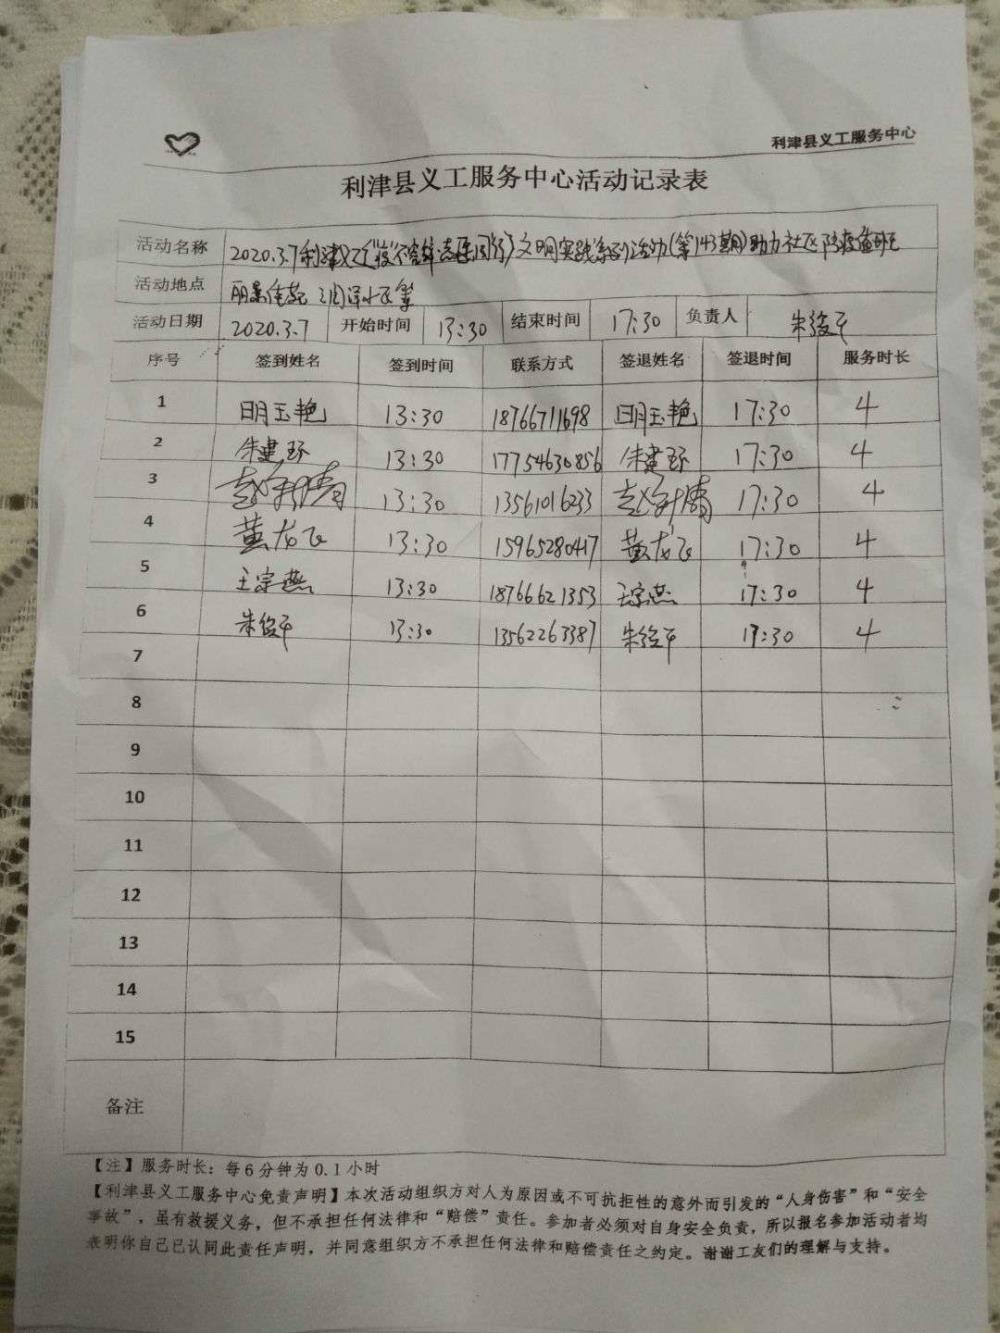 利津县义工服务中心
利津县义工服务中心活动记录表
活动名称 2020.3.7利津义工 文明实践系列活动(第143期)助力社区防疫值班
活动地点 丽景佳苑
活动日期 2020.3.7 开始时间 13:30 结束时间 17:30 负责人 朱俊平
序号 签到姓名 签到时间 联系方式 签退姓名 签退时间 服务时长
1 明玉艳 13:30 18766711698 明玉艳 17:30 4
2 朱建环 13:30 17754630856 朱建环 17:30 4
3 13:30 13561016233 17:30 4
4 黄龙飞 13:30 15965280417 黄龙飞 17:30 4
5 王宗燕 13:30 18766621353 王宗燕 17:30 4
6 朱俊平 13:30 13562263387 朱俊平 17:30 4
7
8
9
10
11
12
13
14
15
备注
【注】服务时长：每6分钟为0.1小时
【利津县义工服务中心免责声明】本次活动组织方对人为原因或不可抗拒性的意外而引发的“人身伤害”和“安全
事故”，虽有救援义务，但不承担任何法律和“赔偿”责任。参加者必须对自身安全负责，所以报名参加活动者均
表明你自己已认同此责任声明，并同意组织方不承担任何法律和赔偿责任之约定。谢谢工友们的理解与支持。